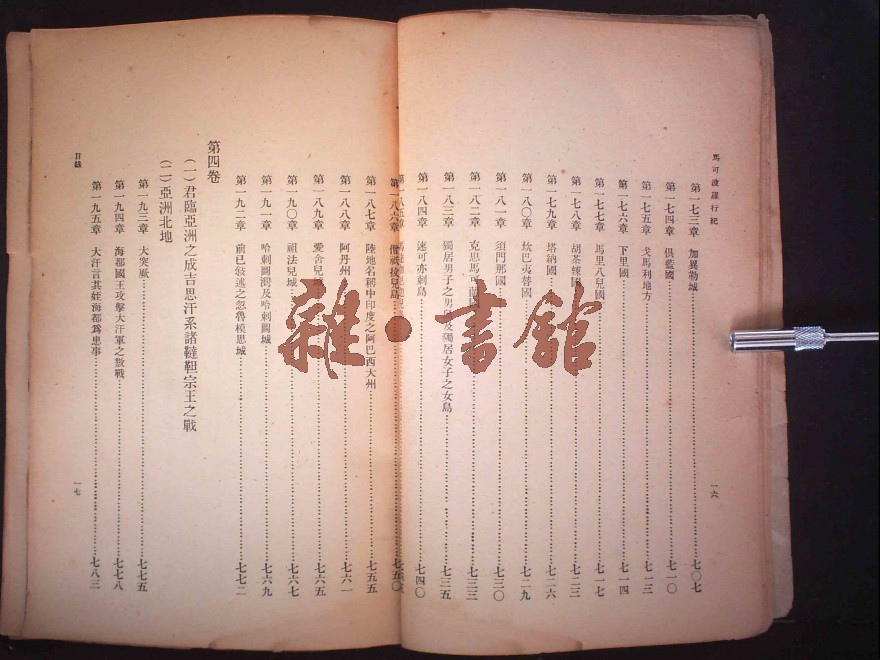 馬可波羅行紀
第一七三章 加異勒城 七〇七
第一七四章 俱藍國 七一〇
第一七五章 戈馬利地方 七一三
第一七六章 下里國 七一四
第一七七章 馬里八兒國 七一七
第一七八章 胡茶辣國 七二三
第一七九章 塔納國 七二六
第一八〇章 坎巴夷替國 七二九
第一八一章 須門那國 七三〇
第一八二章 克思馬可 七三三
第一八三章 獨居男子之男 及獨居女子之女島 七三五
第一八四章 速可亦剌島 七四〇
一六
第一八六章 僧祇拔兒島 七五〇
第一八七章 陸地名稱中印度之阿巴西大州 七五五
第一八八章 阿丹州 七六一
第一八九章 愛舍兒城 七六五
第一九〇章 祖法兒城 七六七
第一九一章 哈剌圖灣及哈剌圖城 七六九
第一九二章 前已敍述之忽魯模思城 七七二
第四卷
(一)君臨亞洲之成吉思汗系諸韃靼宗王之戰
(二)亞洲北地
第一九三章 大突厥 七七五
第一九四章 海都國王攻擊大汗軍之數戰 七七八
第一九五章 大汗言其姪海都爲患事 七八三
目錄
一七
雜·書館